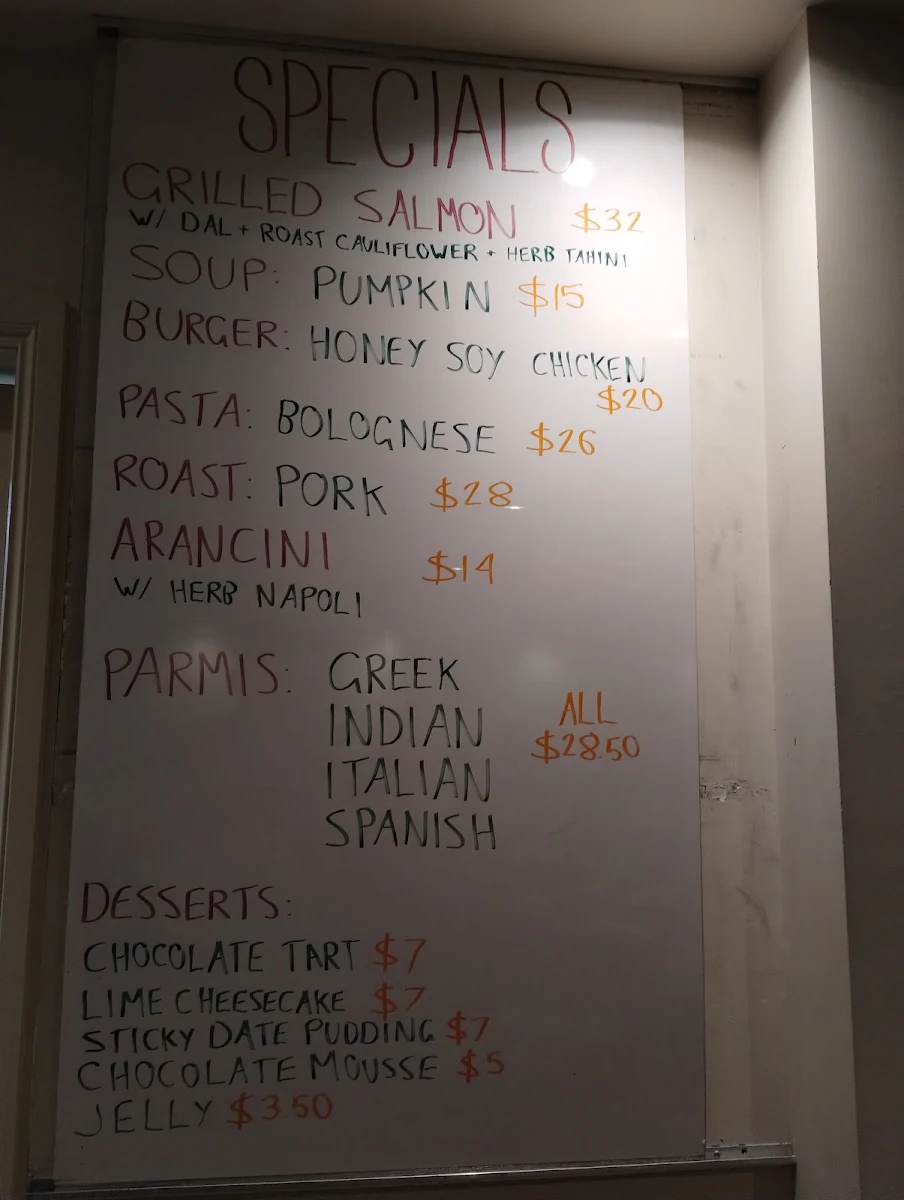 SPECIALS
GRILLED SALMON $32
W/ DAL + ROAST CAULIFLOWER + HERB TAHINI
SOUP: PUMPKIN $15
BURGER: HONEY SOY CHICKEN
$20
PASTA: BOLOGNESE $26
ROAST: PORK $28
ARANCINI $14
W/ HERB NAPOLI
PARMIS: GREEK
INDIAN ALL
$28.50
ITALIAN
SPANISH
DESSERTS:
CHOCOLATE TART $7
LIME CHEESECAKE $7
STICKY DATE PUDDING $7
CHOCOLATE MOUSSE $5
JELLY $3.50